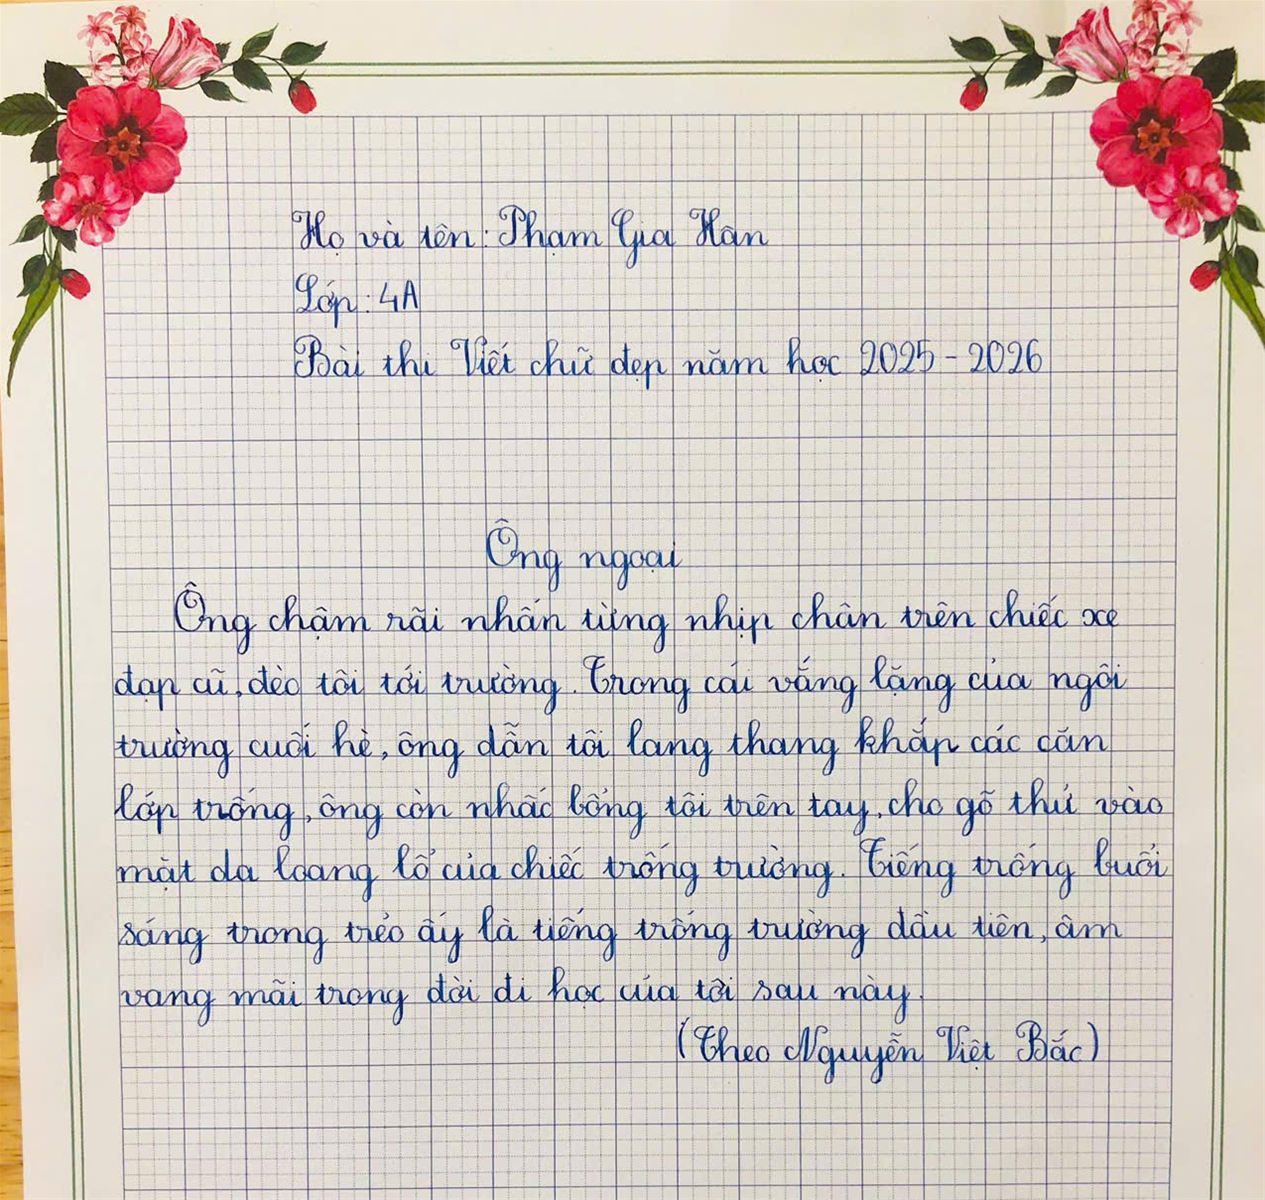 Họ và tên: Phạm Gia Hân
Lớp: 4A
Bài thi Viết chữ đẹp năm học 2025 - 2026
Ông ngoại
Ông chậm rãi nhấn từng nhịp chân trên chiếc xe
đạp cũ, đèo tôi tới trường. Trong cái vắng lặng của ngôi
trường cuối hè, ông dẫn tôi lang thang khắp các căn
lớp trống, ông còn nhấc bổng tôi trên tay, cho gõ thử vào
mặt da loang lổ của chiếc trống trường. Tiếng trống buổi
sáng trong trẻo ấy là tiếng trống trường đầu tiên, âm
vang mãi trong đời đi học của tôi sau này.
(Theo Nguyễn Việt Bắc)